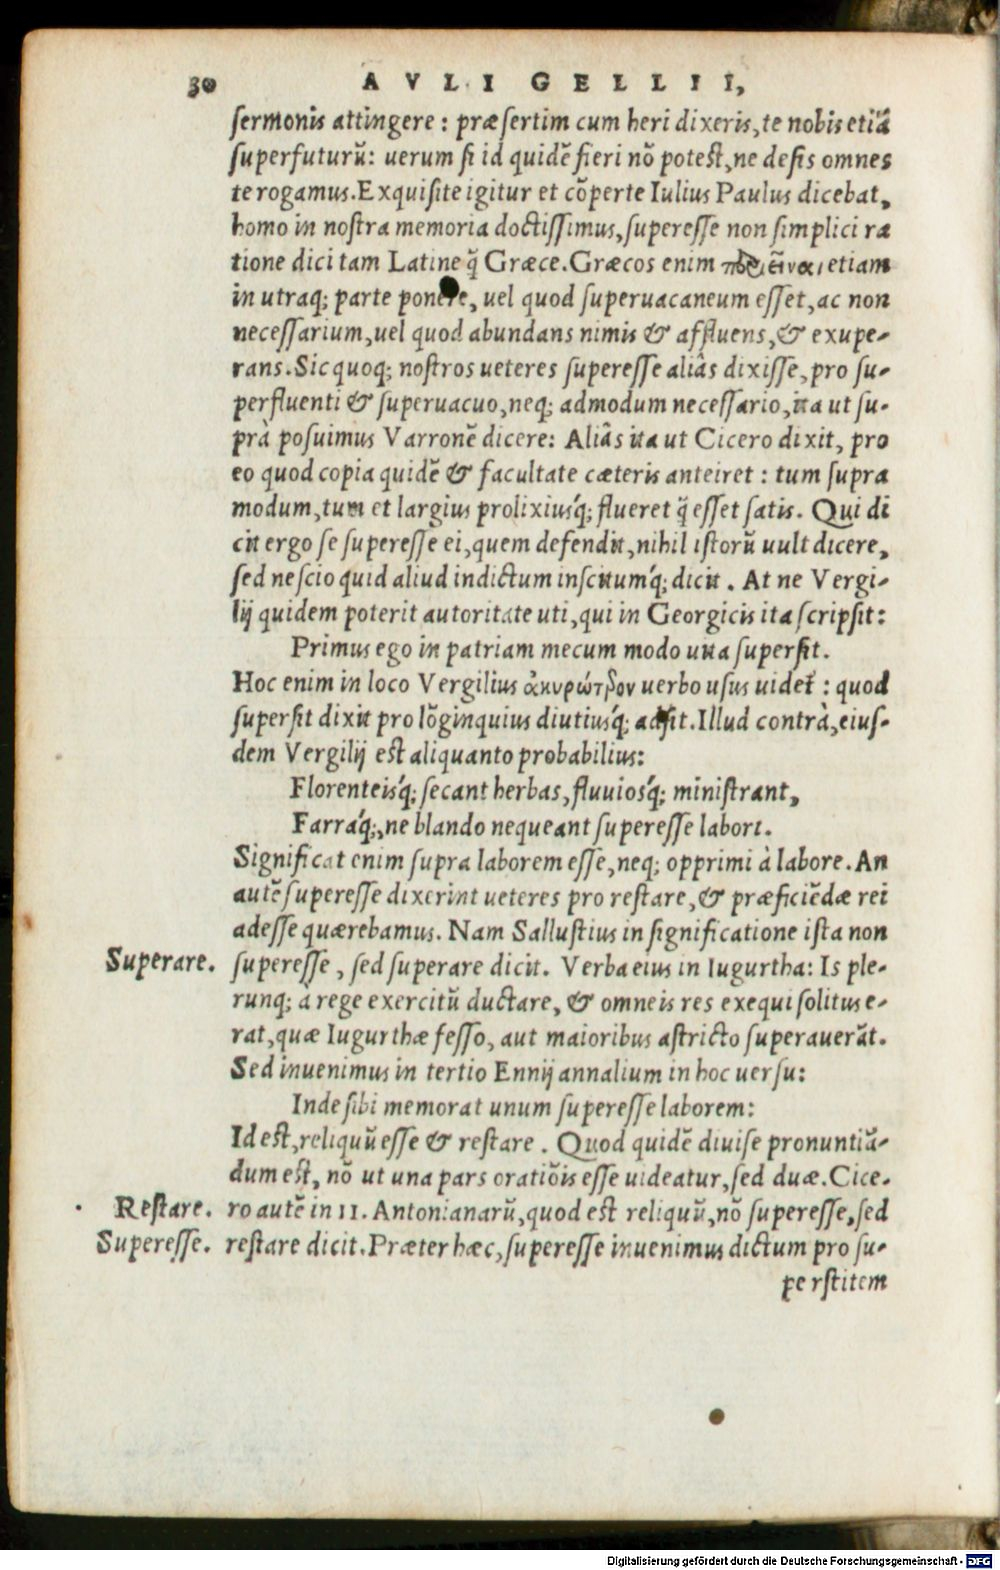 30 AVLI GELLII,
sermonis attingere: præsertim cum heri dixeris, te nobis etiã
superfuturũ: uerum si id quidẽ fieri nõ potest, ne desis omnes
te rogamus. Exquisite igitur et cõperte Iulius Paulus dicebat,
homo in nostra memoria doctissimus, superesse non simplici ra
tione dici tam Latine q̃ Græce. Græcos enim etiam
in utraq; parte ponere, uel quod superuacaneum esset, ac non
necessarium, uel quod abundans nimis & affluens, & exupe-
rans. Sic quoq; nostros ueteres superesse aliâs dixisse, pro su-
perfluenti & superuacuo, neq; admodum necessario, ita ut su-
prà posuimus Varronẽ dicere: Aliâs ita ut Cicero dixit, pro
eo quod copia quidẽ & facultate cæteris anteiret: tum supra
modum, tum et largius prolixiusq́; flueret q̃ esset satis. Qui di
cit ergo se superesse ei, quem defendit, nihil istorũ uult dicere,
sed nescio quid aliud indictum inscitumq́; dicit. At ne Vergi-
lij quidem poterit autoritate uti, qui in Georgicis ita scripsit:
Primus ego in patriam mecum modo uita supersit.
Hoc enim in loco Vergilius ἀκυρώτερον uerbo usus uidet̃: quod
supersit dixit pro lõginquius diutiusq́; adsit. Illud contrà, eius-
dem Vergilij est aliquanto probabilius:
Florenteisq́; secant herbas, fluuiosq́; ministrant,
Farraq́;, ne blando nequeant superesse labori.
Significat enim supra laborem esse, neq; opprimi à labore. An
autẽ superesse dixerint ueteres pro restare, & præficiẽdæ rei
adesse quærebamus. Nam Sallustius in significatione ista non
Superare. superesse, sed superare dicit. Verba eius in Iugurtha: Is ple-
runq; à rege exercitũ ductare, & omneis res exequi solitus e-
rat, quæ Iugurthæ fesso, aut maioribus astricto superauerãt.
Sed inuenimus in tertio Ennij annalium in hoc uersu:
Inde sibi memorat unum superesse laborem:
Id est, reliquũ esse & restare. Quod quidẽ diuise pronuntiã-
dum est, nõ ut una pars oratiõis esse uideatur, sed duæ. Cice-
Restare. ro autẽ in II. Antonianarũ, quod est reliquũ, nõ superesse, sed
Superesse. restare dicit. Præter hæc, superesse inuenimus dictum pro su-
perstitem
Digitalisierung gefördert durch die Deutsche Forschungsgemeinschaft - DFG